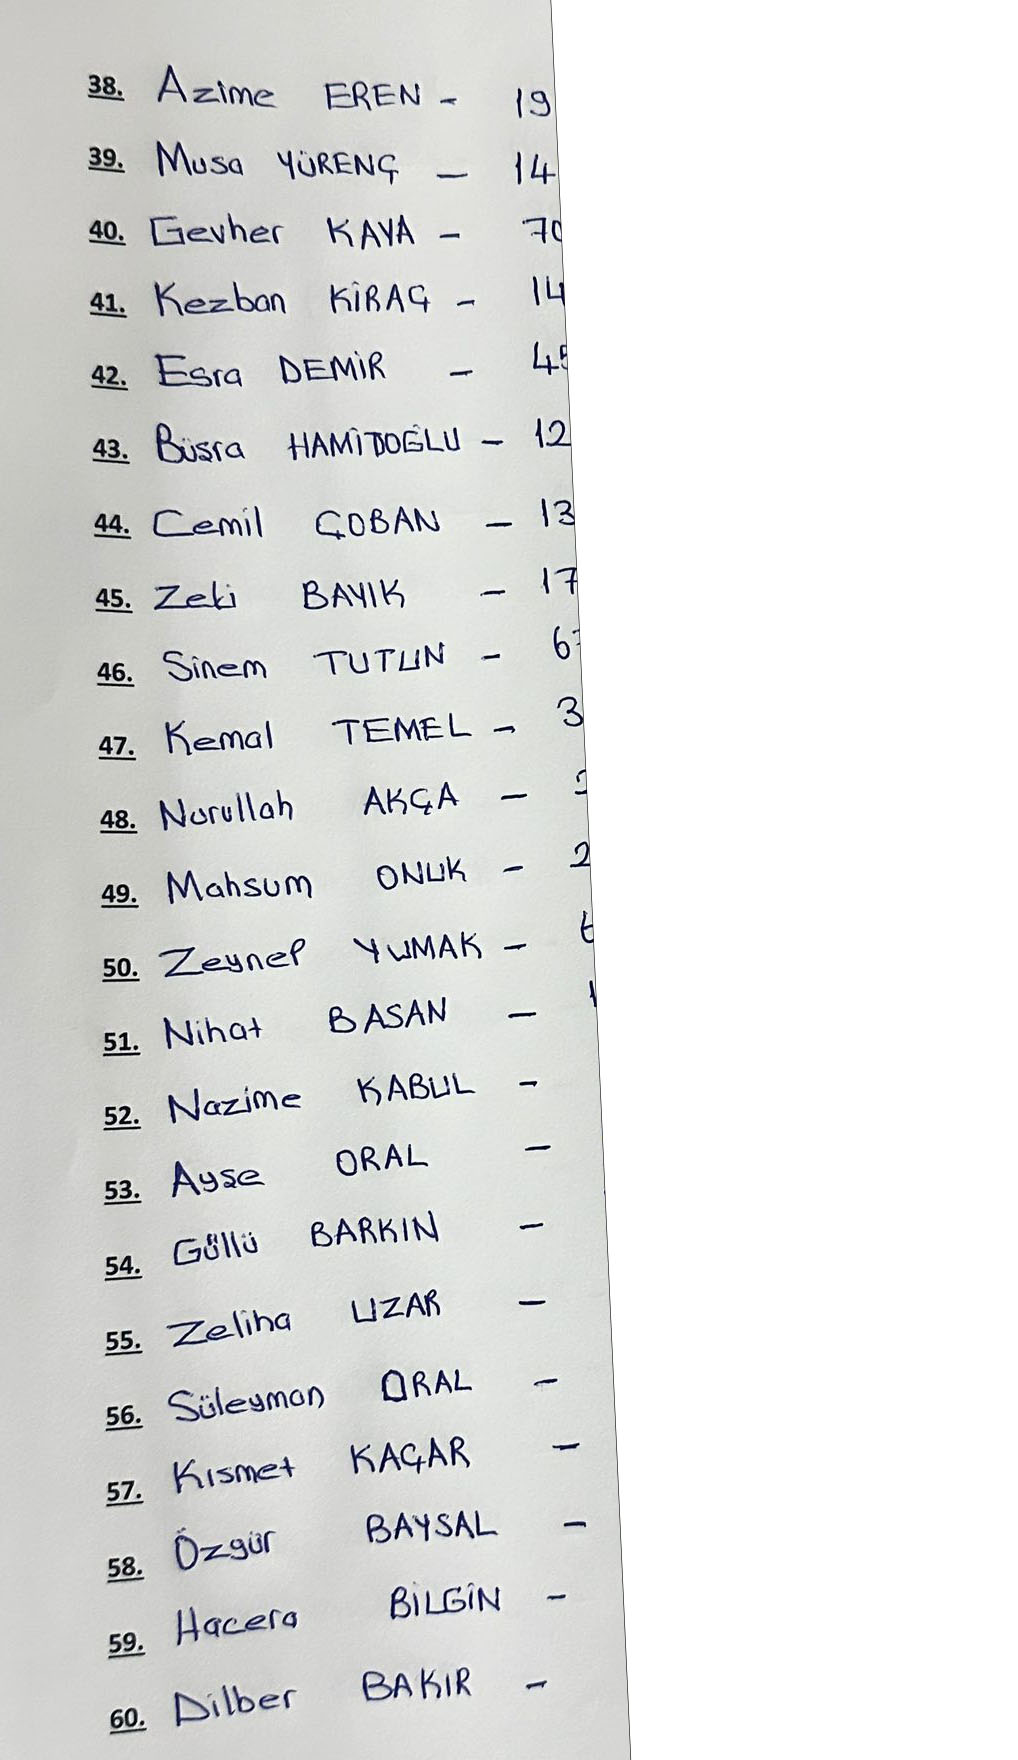 38. Azime EREN - 19
39. Musa YÜRENÇ - 14
40. Gevher KAYA - 70
41. Kezban KİRAÇ - 14
42. Esra DEMİR - 45
43. Büşra HAMİDOĞLU - 12
44. Cemil ÇOBAN - 13
45. Zeki BAYIK - 17
46. Sinem TUTUN - 6
47. Kemal TEMEL - 3
48. Nurullah AKÇA -
49. Mahsum ONUK - 2
50. Zeynep YUMAK - 6
51. Nihat BASAN - 1
52. Nazime KABUL -
53. Ayşe ORAL -
54. Güllü BARKIN -
55. Zeliha UZAR -
56. Süleyman ORAL -
57. Kısmet KAÇAR -
58. Özgür BAYSAL -
59. Hacera BİLGİN -
60. Dilber BAKIR -